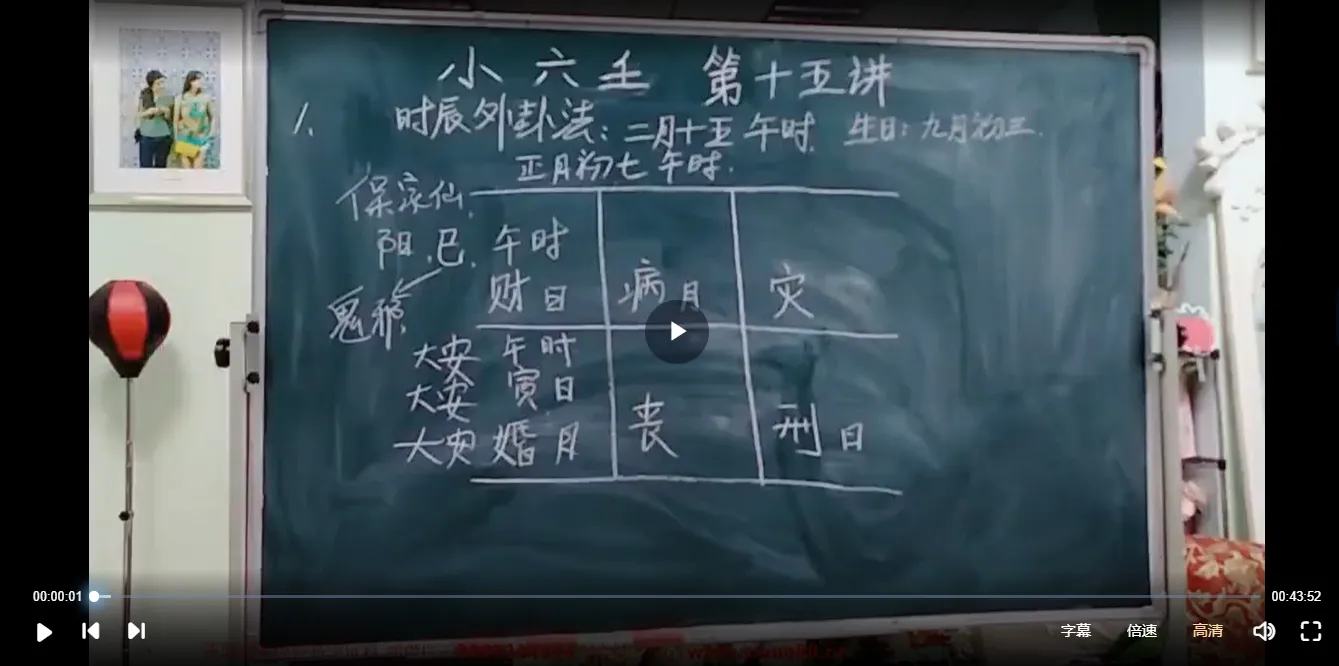 小六壬 第十五讲
1、 时辰外卦法：二月十五 午时. 生日：九月初三.
正月初七 午时.
保家仙.
阳.巳.午时
财日 病月 灾
鬼
大安 午时
大安 寅日
大安 婚月 丧 刑日
00:00:01 00:43:52
字幕 倍速 高清